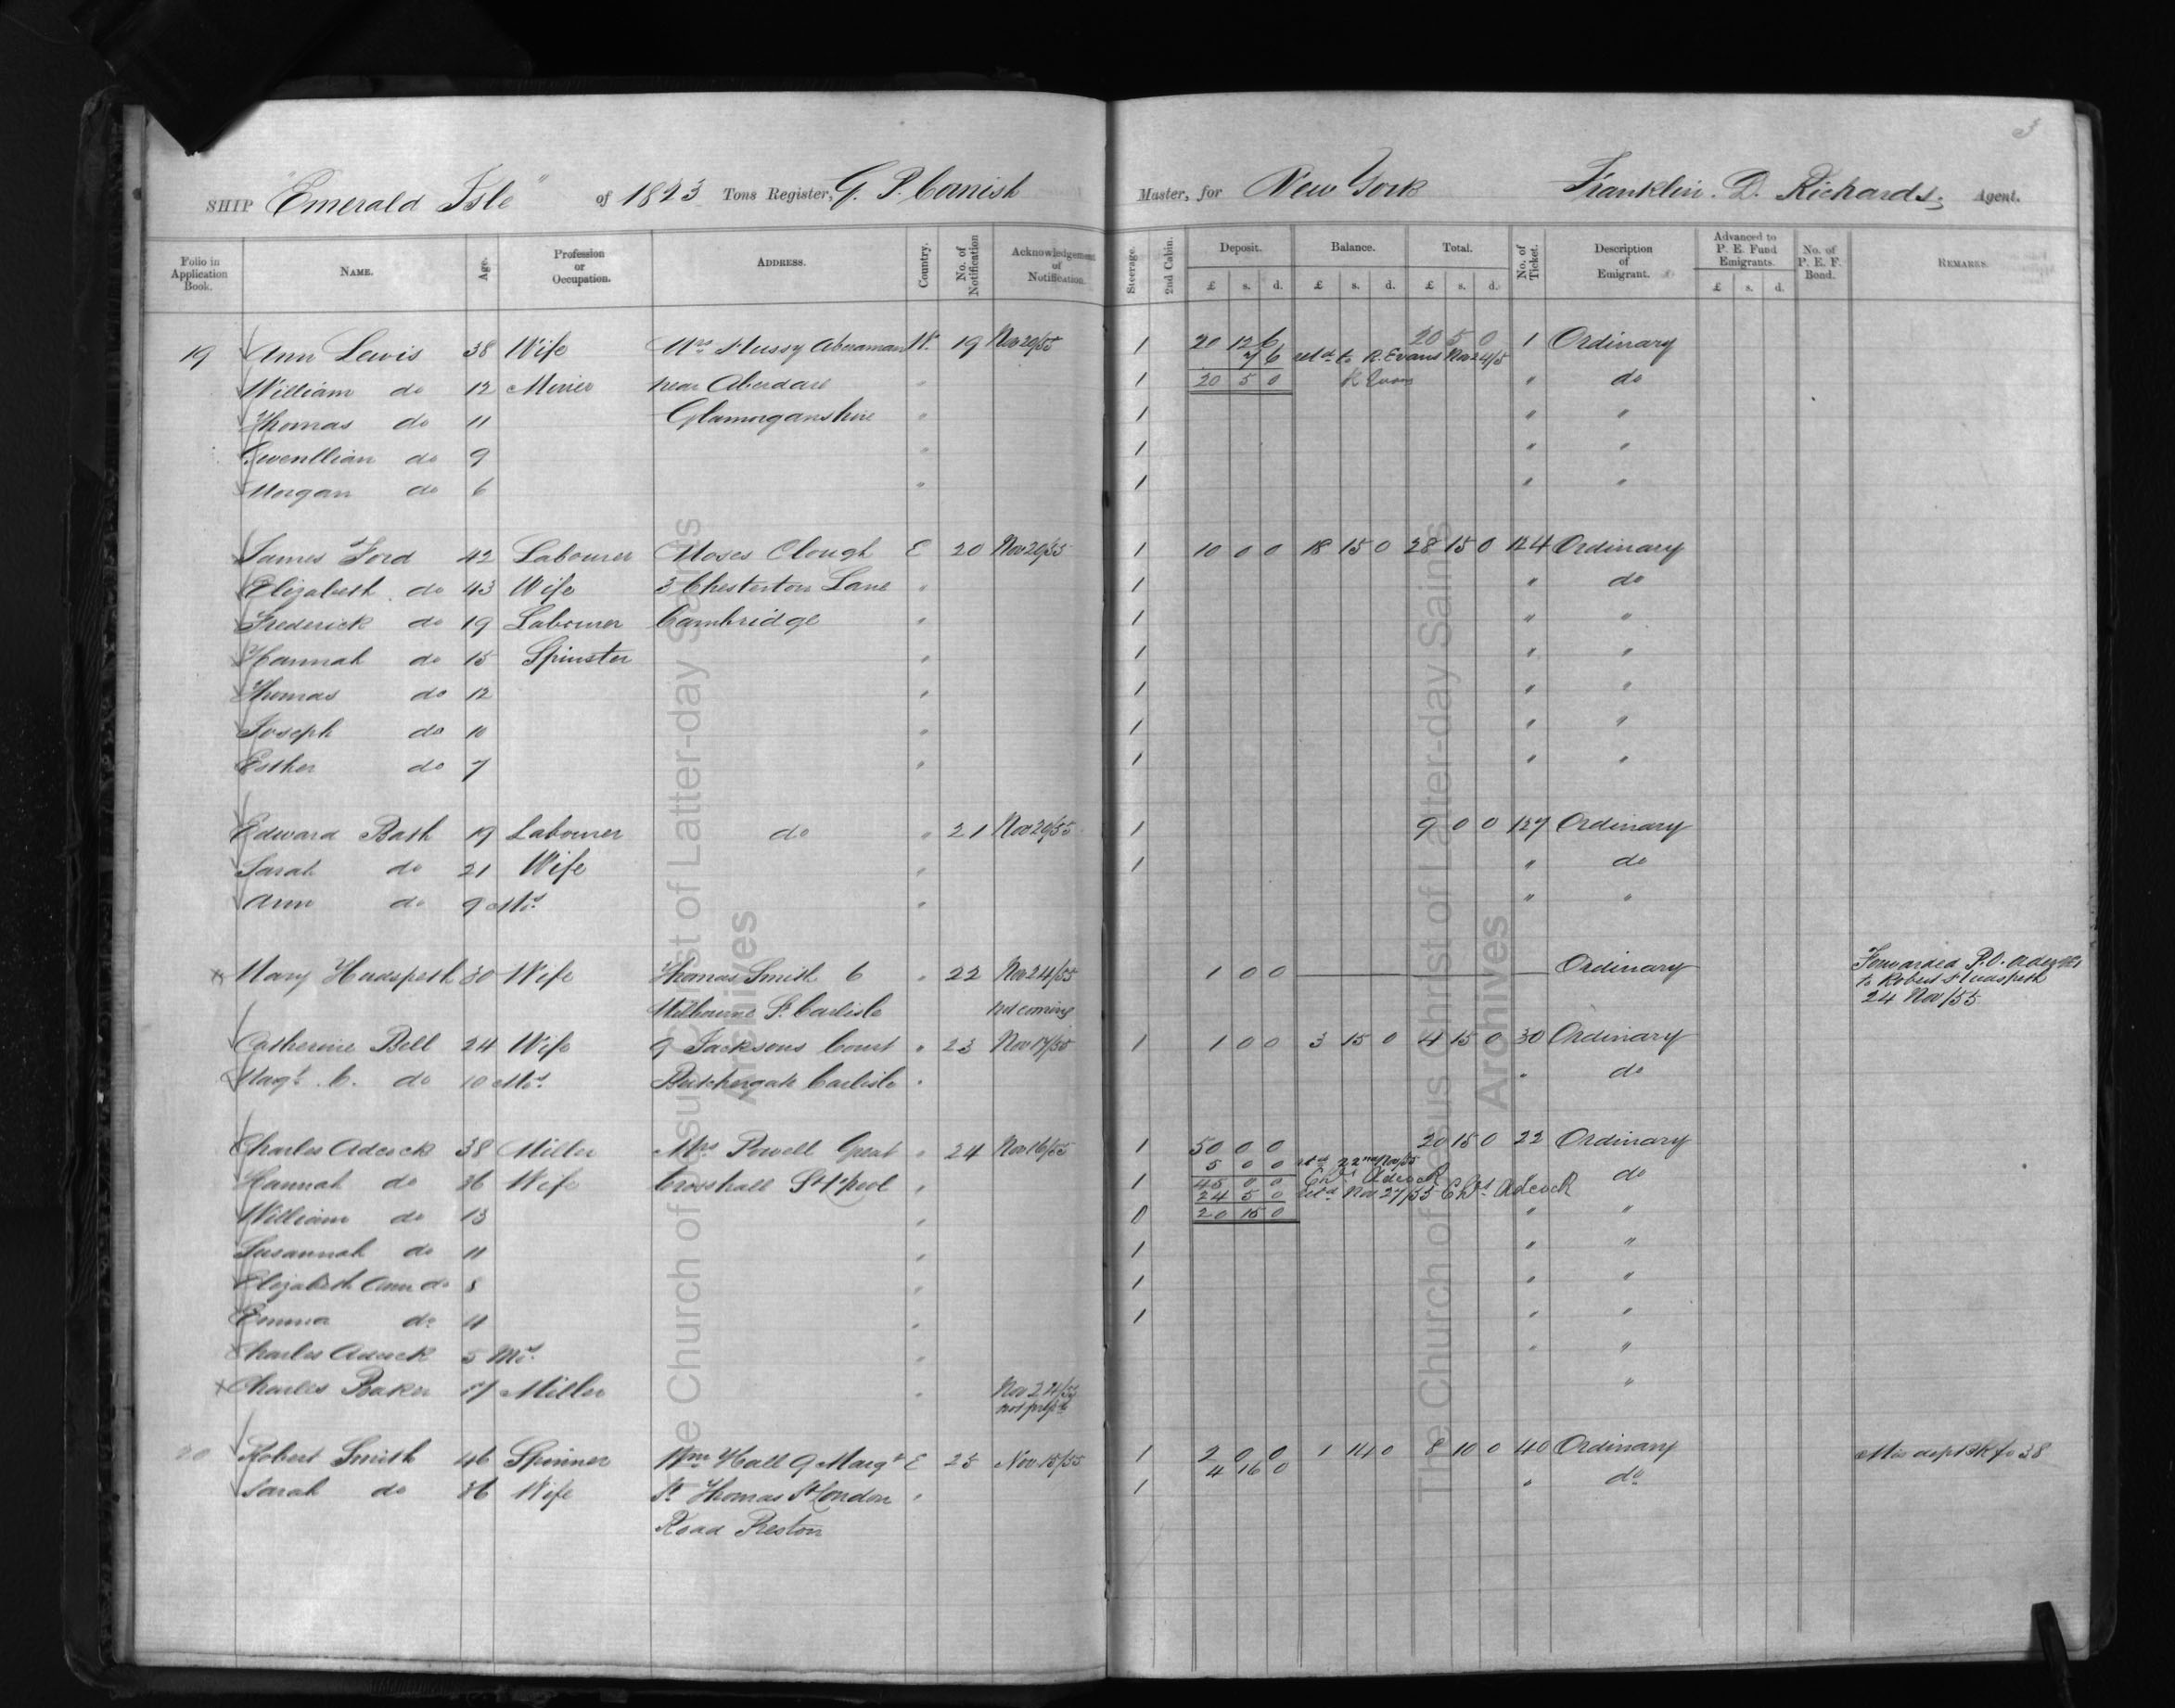 3
SHIP "Emerald Isle" of 1823 Tons Register, G. P. Cornish Master, for New York Franklin. D. Richards, Agent.
Folio in Application Book. NAME. Age. Profession or Occupation. ADDRESS. Country. No. of Notification Acknowledgement of Notification. Steerage. 2nd Cabin. Deposit. Balance. Total. No. of Ticket. Description of Emigrant. Advanced to P. E. Fund Emigrants. No. of P. E. F. Bond. REMARKS.
£ s. d. £ s. d. £ s. d. £ s. d.
19 Ann Lewis 38 Wife Aberaman W. 19 Nov 20/55 1 20 12 6 20 5 0 1 Ordinary
7 6 retd to R. Evans Nov 24/5
William do 12 Miner near Aberdare " 1 20 5 0 R Evans " do
Thomas do 11 Glamorganshire " 1 " "
Gwenllian do 9 " 1 " "
Morgan do 6 " 1 " "
James Ford 42 Labourer Moses Clough E 20 Nov 20/55 1 10 0 0 18 15 0 28 15 0 124 Ordinary
Elizabeth do 43 Wife 3 Chesterton Lane " 1 " do
Frederick do 19 Labourer Cambridge " 1 " "
Hannah do 15 Spinster " 1 " "
Thomas do 12 " 1 " "
Joseph do 10 " 1 " "
Esther do 7 " 1 " "
Edward Bash 19 Labourer do " 21 Nov 20/55 1 9 0 0 127 Ordinary
Sarah do 21 Wife " 1 " do
Ann do 9 Mos " " "
x Mary Hudspeth 30 Wife Thomas Smith 6 " 22 Nov 24/55 1 0 0 Ordinary Forwarded P.O. Order
to Robert Hudspeth
Milbourne St. Carlisle not coming 24 Nov/55
Catherine Bell 24 Wife 9 Jacksons Court " 23 Nov 17/55 1 1 0 0 3 15 0 4 15 0 30 Ordinary
Magt. C. do 10 Mos. Butchergate Carlisle " " do
Charles Adcock 38 Miller Mrs Powell Great " 24 Nov 16/55 1 50 0 0 20 15 0 22 Ordinary
5 0 0 retd 22nd Nov/55
Hannah do 36 Wife Crosshall St L'pool " 1 45 0 0 Chs Adcock do
24 5 0 Retd Nov 27/55 Chs Adcock
William do 13 " 0 20 15 0 " "
Susannah do 11 " 1 " "
Elizabeth Ann do 8 " 1 " "
Emma do 4 " 1 " "
Charles Adcock 5 Mos. " " "
x Charles Baker 17 Miller " Nov "
not
20 Robert Smith 46 Spinner Wm Hall 9 Margt E 25 Nov 15/55 1 2 0 0 1 14 0 8 10 0 40 Ordinary
4 16 0
Sarah do 36 Wife St Thomas St London " 1 " do
Road Preston
The Church of Jesus Christ of Latter-day Saints
Archives
The Church of Jesus Christ of Latter-day Saints
Archives